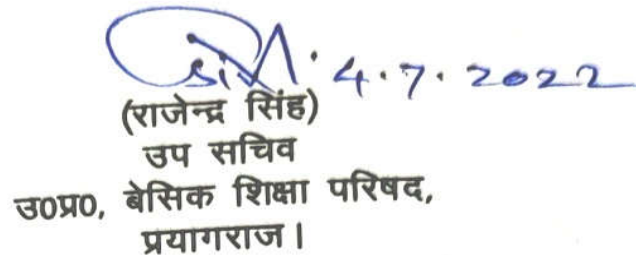 4.7.2022
(राजेन्द्र सिंह)
उप सचिव
उ०प्र०, बेसिक शिक्षा परिषद,
प्रयागराज।